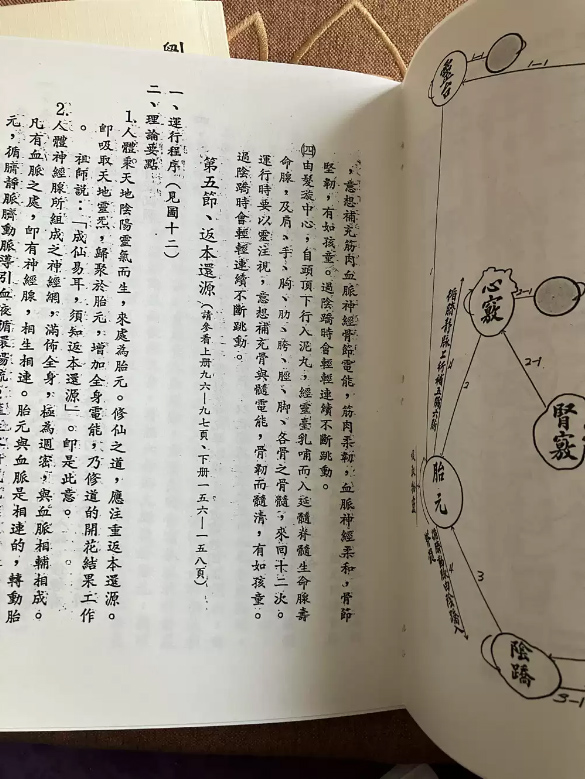 ，意想補充筋肉血脈神經骨節電能，筋肉柔軔，血脈神經柔和，骨節
堅軔，有如孩童。過陰蹻時會輕輕連續不斷跳動。
㈣由髮漩中心，自頭頂下行入泥丸，經靈臺乳哺而入延髓脊髓生命腺壽
命腺，及肩、手、胸、肋、胯、脛、脚、各骨之骨髓，來囘十二次。
運行時要以靈注視，意想補充骨與髓電能，骨軔而髓清，有如孩童。
過陰蹻時會輕輕連續不斷跳動。
第五節、返本還源（請參看上册九六—九七頁、下册一五六—一五八頁）
一、運行程序（見圖十二）
二、理論要點
1.人體秉天地陰陽靈氣而生，來處為胎元。修仙之道，應注重返本還源。
卽吸取天地靈炁，歸聚於胎元，增加全身電能，乃修道的開花結果工作
。祖師說：「成仙易耳，須知返本還源」。卽是此意。
2.人體神經腺所組成之神經網，滿佈全身，極為週密，與血脈相輔相成。
凡有血脈之處，卽有神經腺，相生相連。胎元與血脈是相連的，轉動胎
元，循臍靜脈臍動脈導引血液循環
靈台
1-1
1-1
心竅
2-1
腎竅
2
4
循臍靜脈上行補五臟六腑
胎元
3
4
陰蹻
3-1